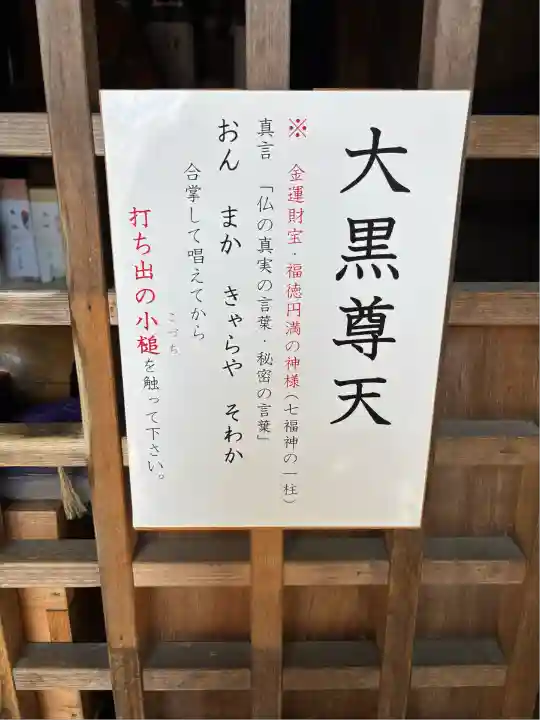 大黒尊天
※ 金運財宝・福徳円満の神様（七福神の一柱）
真言 「仏の真実の言葉・秘密の言葉」
おん まか きゃらや そわか
合掌して唱えてから
打ち出の小槌を触って下さい。
こづち